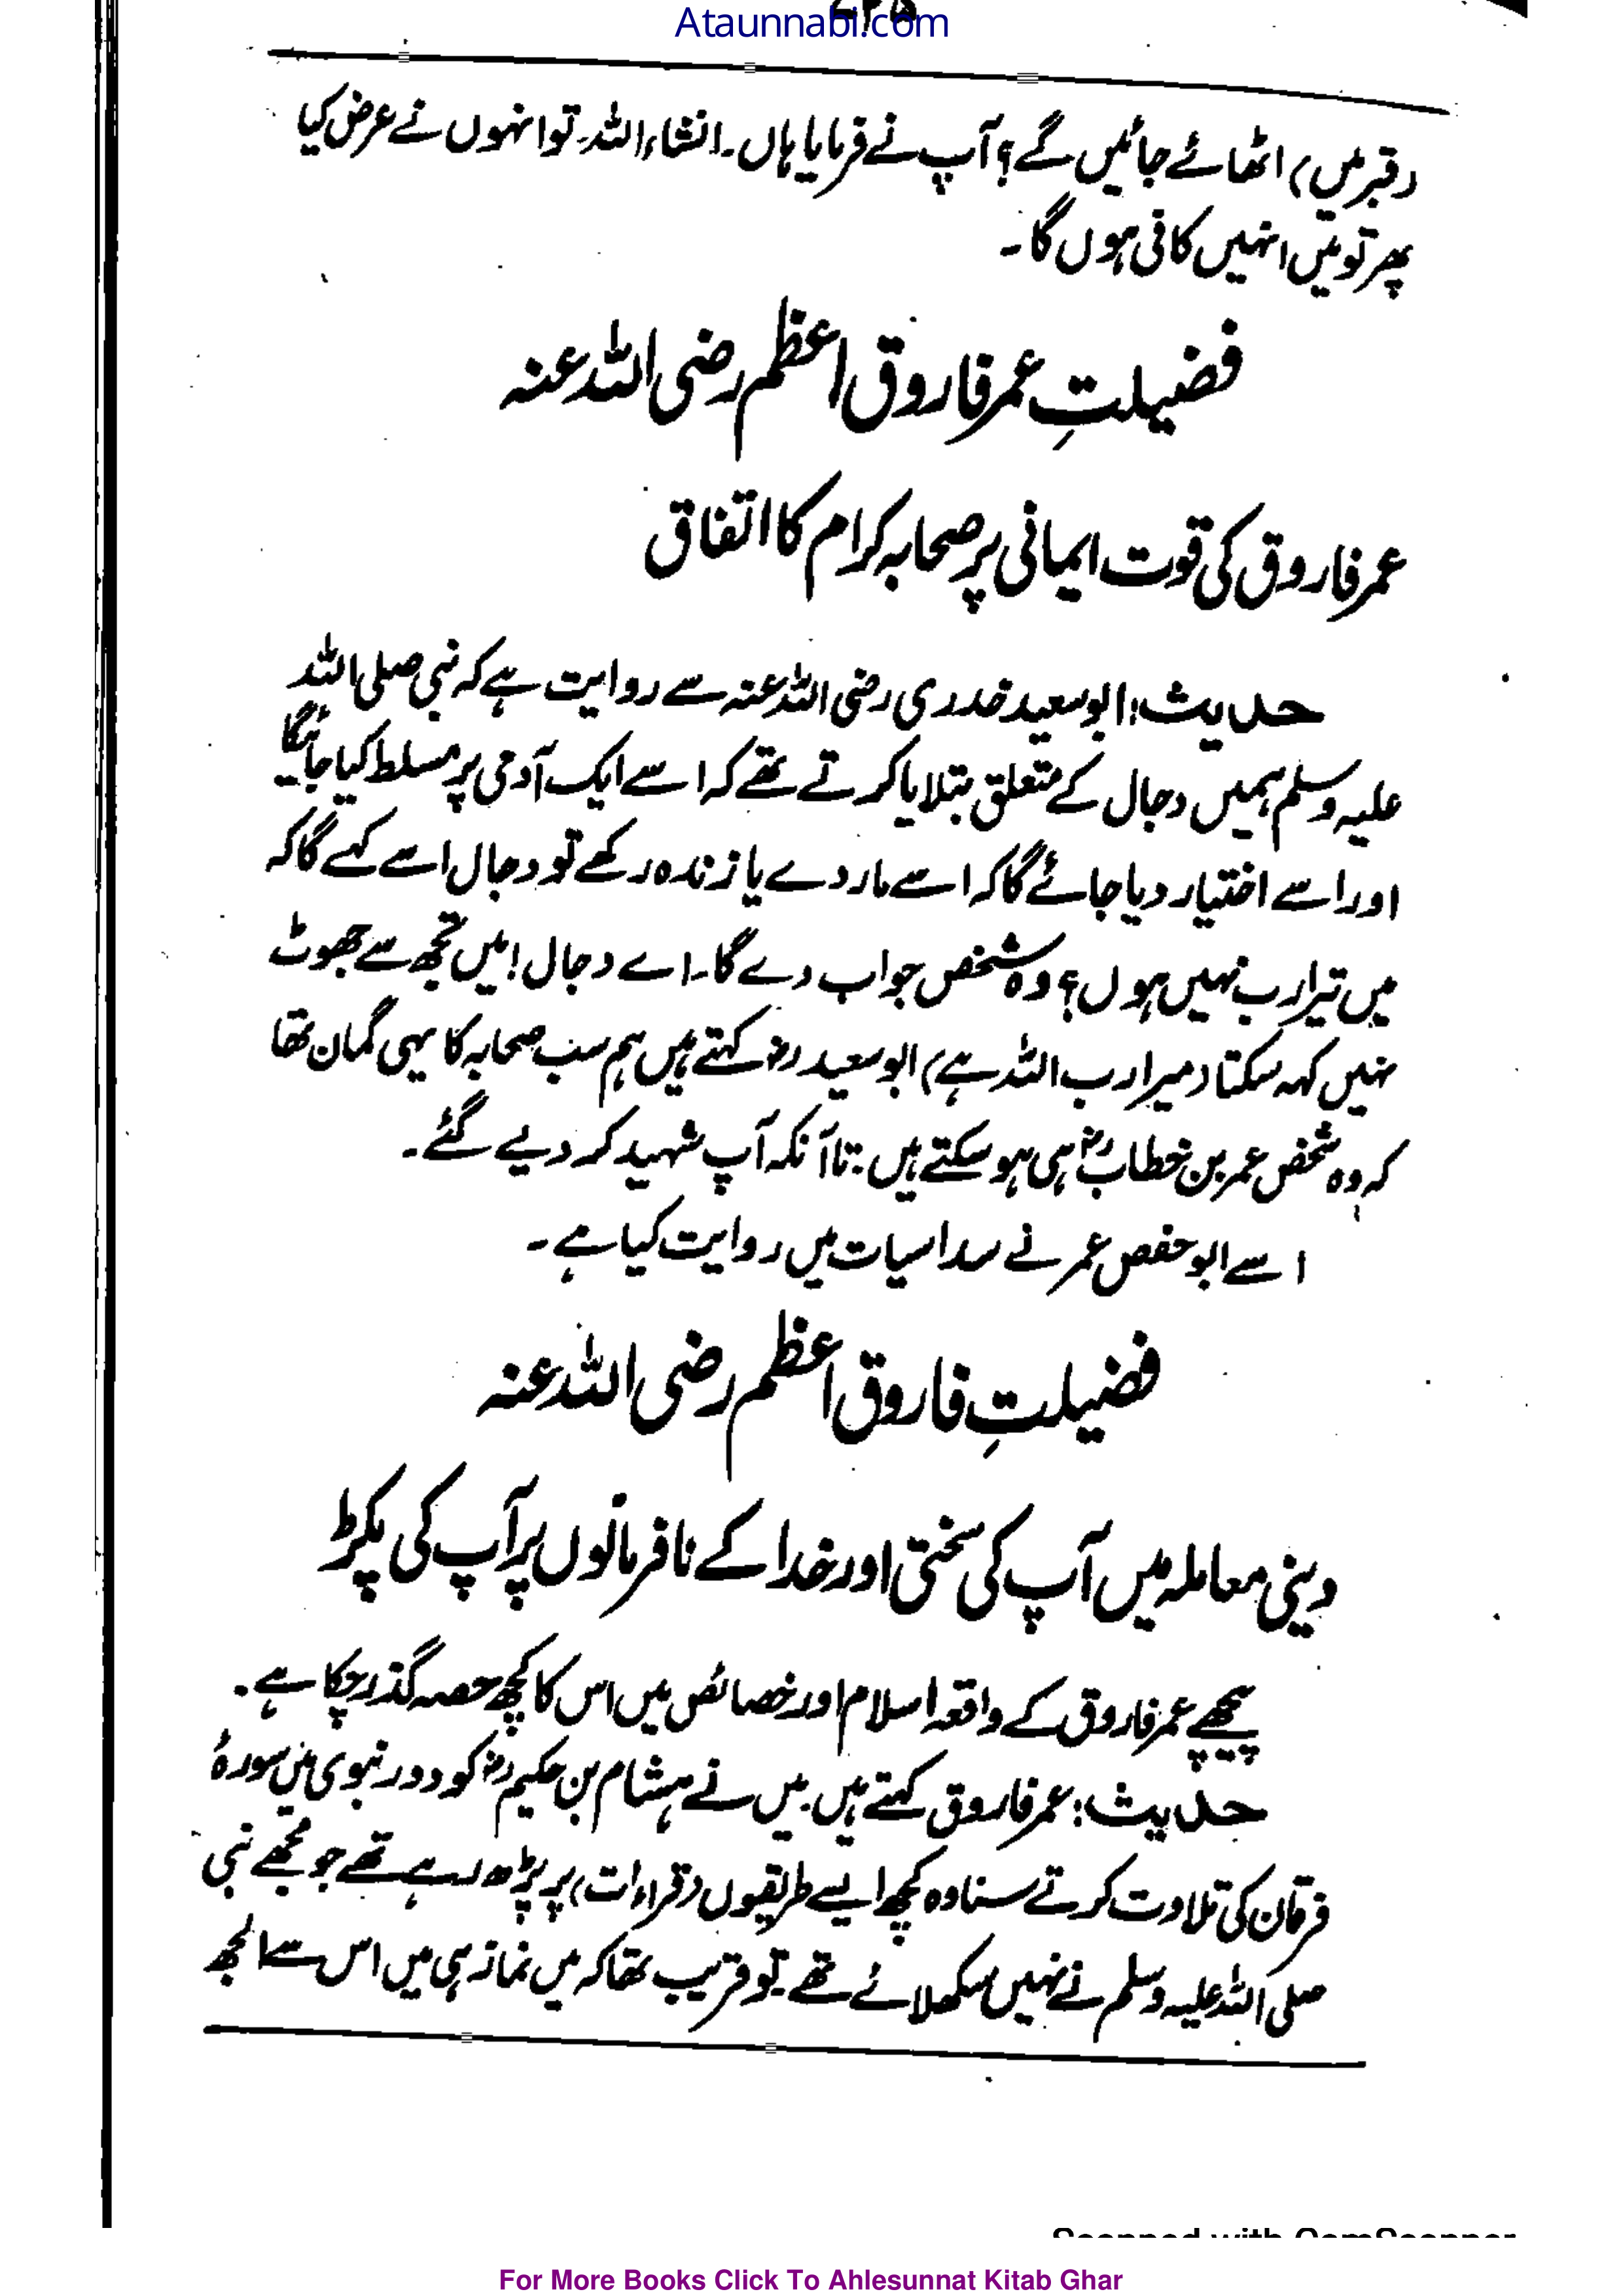 Ataunnabi.com
(قبر میں) اٹھائے جائیں گے؟ آپ نے فرمایا ہاں۔ انشاء اللہ۔ تو انہوں نے عرض کیا
پھر تو میں انہیں کافی ہوں گا۔
فضیلتِ عمر فاروق اعظم رضی اللہ عنہ
عمر فاروق کی قوت ایمانی پر صحابہ کرام کا اتفاق
حدیث: ابو سعید خدری رضی اللہ عنہ سے روایت ہے کہ نبی صلی اللہ
علیہ وسلم ہمیں دجال کے متعلق بتلایا کرتے تھے کہ اسے ایک آدمی پر مسلط کیا جائیگا
اور اسے اختیار دیا جائے گا کہ اسے مار دے یا زندہ رکھے تو دجال اسے کہے گا کہ
میں تیرا رب نہیں ہوں؟ وہ شخص جواب دے گا۔ اے دجال! میں تجھ سے جھوٹ
نہیں کہہ سکتا (میرا رب اللہ ہے) ابو سعید رضؓ کہتے ہیں ہم سب صحابہ کا یہی گمان تھا
کہ وہ شخص عمر بن خطابؓ ہی ہو سکتے ہیں: تا آنکہ آپ شہید کر دیے گئے۔
اسے ابو حفص عمر نے سداسیات میں روایت کیا ہے۔
فضیلتِ فاروق اعظم رضی اللہ عنہ
دینی معاملہ میں آپ کی سختی اور خدا کے نافرمانوں پر آپ کی پکڑ
پیچھے عمر فاروق کے واقعہ اسلام اور خصائص میں اس کا کچھ حصہ گذر چکا ہے۔
حدیث: عمر فاروق کہتے ہیں۔ میں نے ہشام بن حکیمؓ کو دور نبوی میں سورۂ
فرقان کی تلاوت کرتے سنا وہ کچھ ایسے طریقوں (قراءات) پر پڑھ رہے تھے جو مجھے نبی
صلی اللہ علیہ وسلم نے نہیں سکھلائے تھے۔ تو قریب تھا کہ میں نماز ہی میں اس سے الجھ
For More Books Click To Ahlesunnat Kitab Ghar